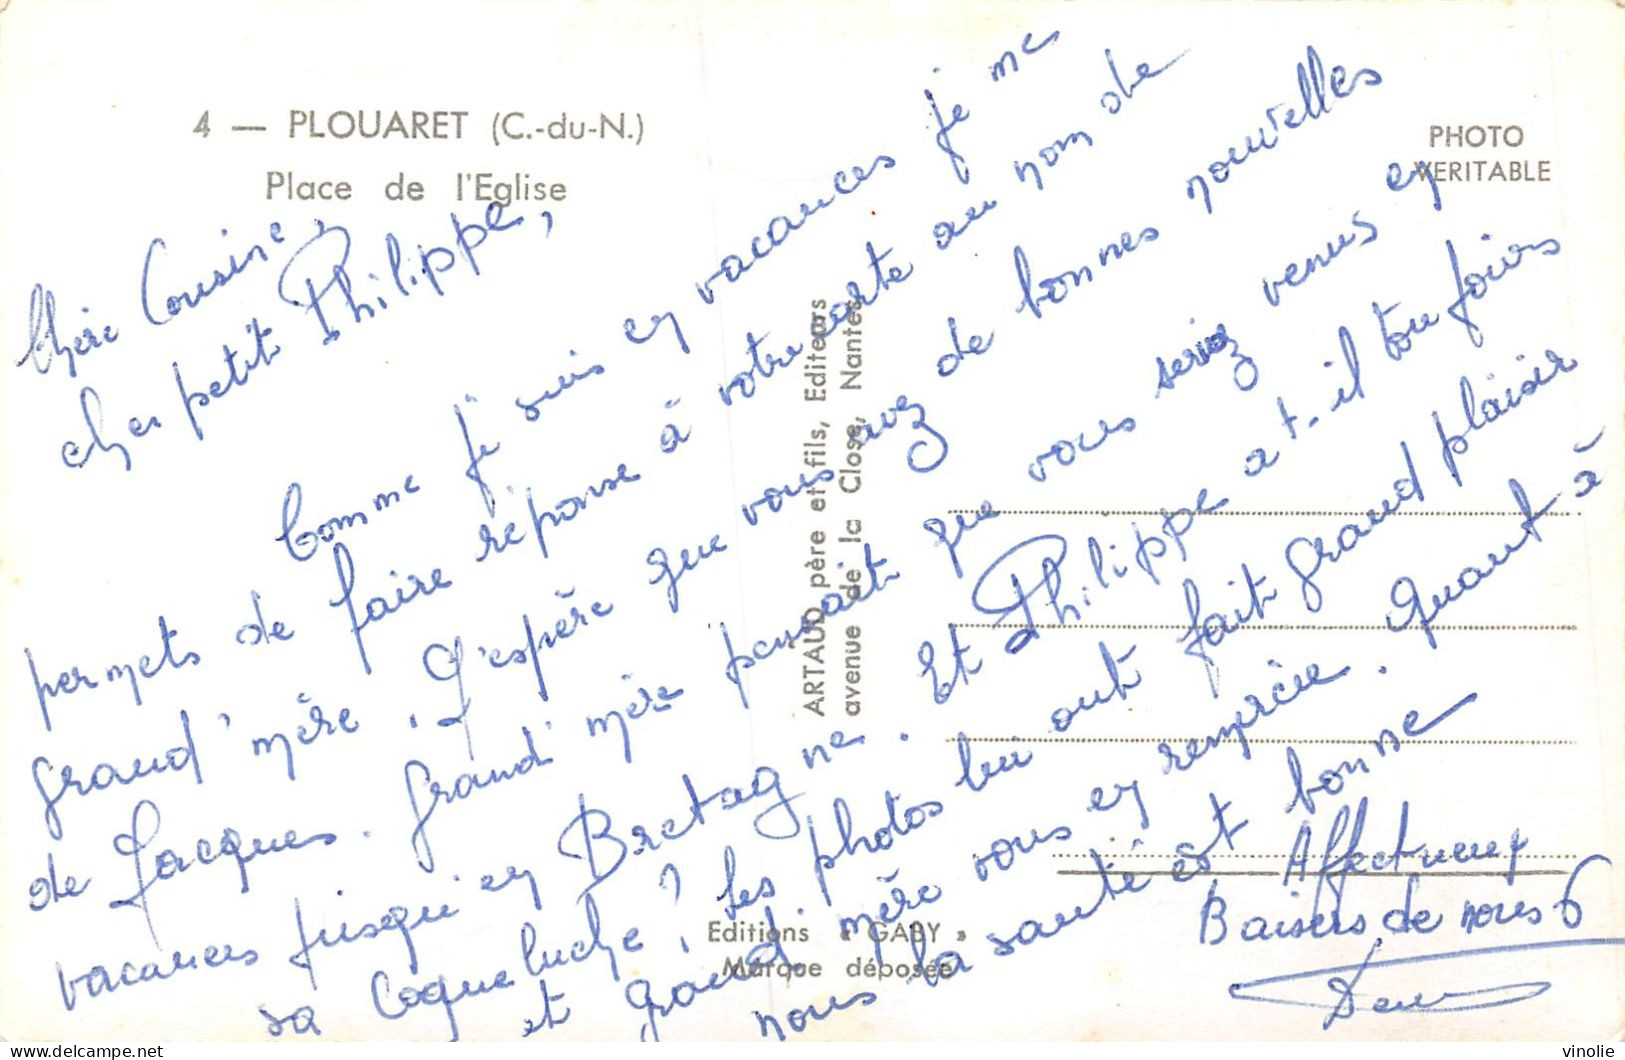 4 — PLOUARET (C.-du-N.)
Place de l'Eglise
PHOTO
VERITABLE
Chère Cousine,
cher petit Philippe,
Comme je suis en vacances je me
permets de faire réponse à votre carte au nom de
grand'mère. J'espère que vous avez de bonnes nouvelles
de Jacques. Grand'mère pensait que vous seriez venus en
vacances jusqu'en Bretagne. Et Philippe a t-il toujours
sa Coqueluche? Les photos lui ont fait grand plaisir
et Grand'mère vous en remercie. Quant à
nous la santé est bonne
Affectueux
Baisers de nous 6
ARTAUD père et fils, Editeurs
avenue de la Close, Nantes
Editions « GABY »
Marque déposée
delcampe.net
vinolie